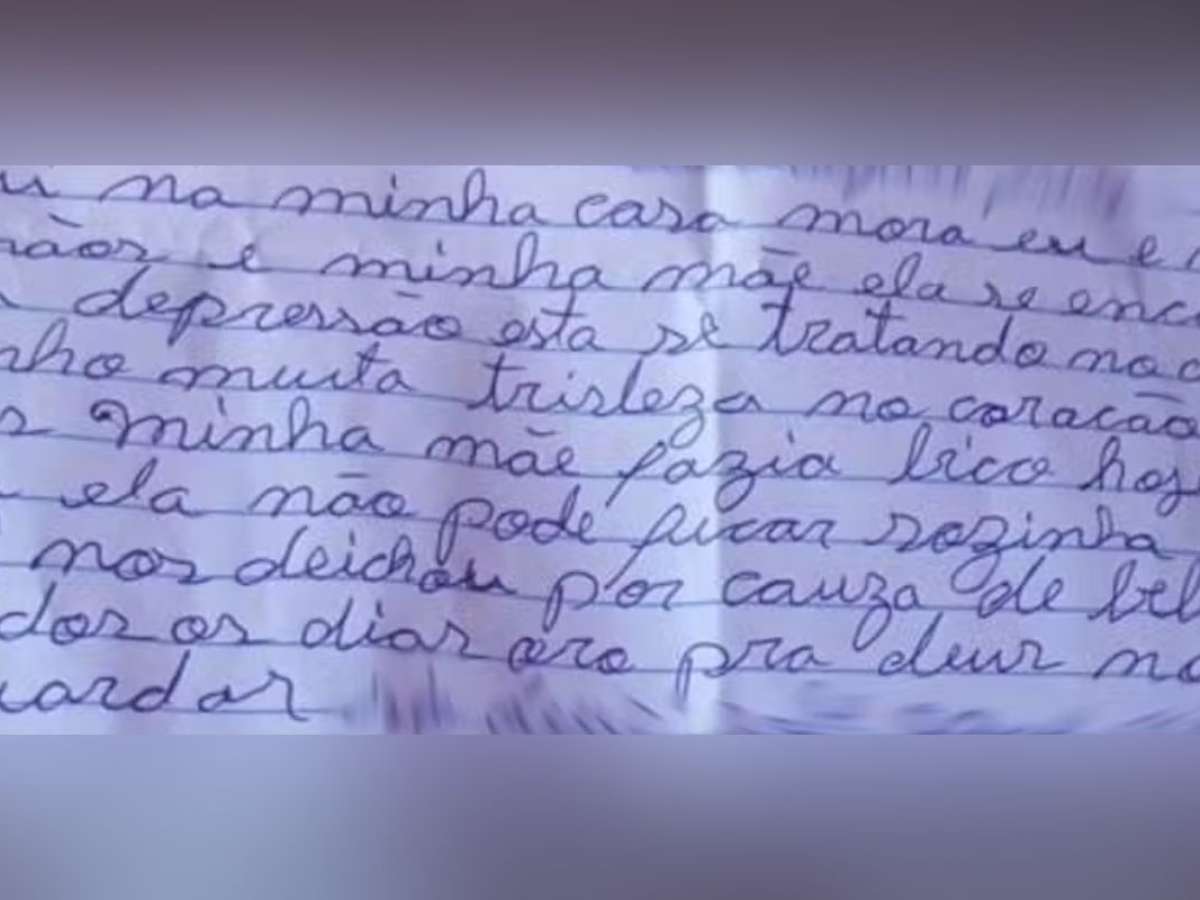 u na minha casa mora eu e
mãos e minha mãe ela se enc
depressão esta se tratando no
nho muita tristeza no coracão
s minha mãe fazia bico hoj
ela não pode ficar sozinha
nos deichou por cauza de beb
dos os dias oro pra deus no
uardar